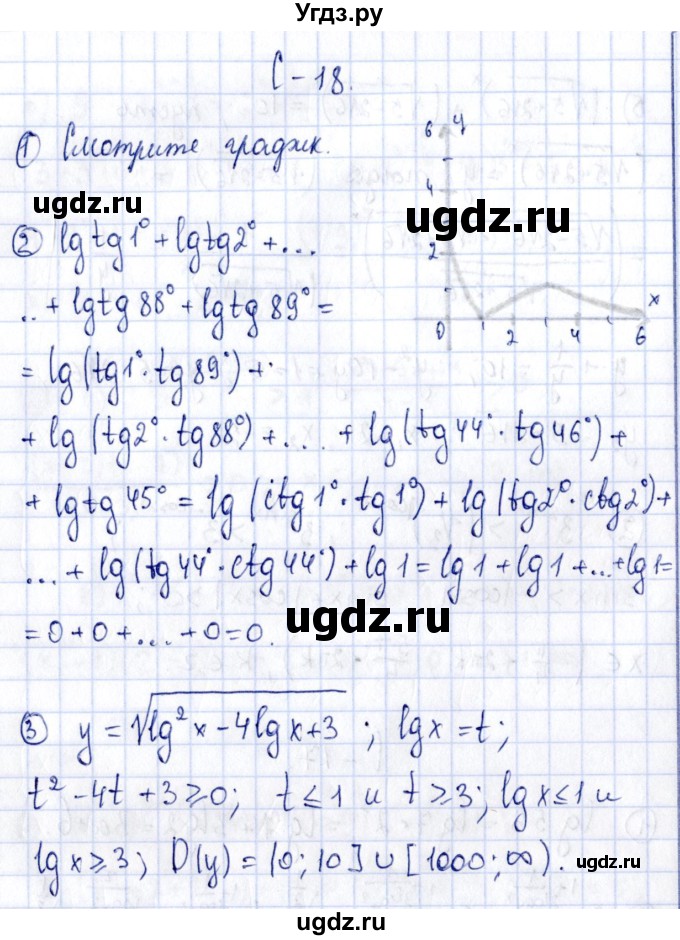 Угдз.ру
С-18.
① Смотрите график.
6 y
4
2
0 2 4 6 x
ugdz.ru
ugdz.ru
② lg tg 1° + lg tg 2° + ...
.. + lg tg 88° + lg tg 89° =
= lg (tg 1° · tg 89°) +
+ lg (tg 2° · tg 88°) + ... + lg (tg 44° · tg 46°) +
+ lg tg 45° = lg (ctg 1° · tg 1°) + lg (tg 2° · ctg 2°) +
... + lg (tg 44° · ctg 44°) + lg 1 = lg 1 + lg 1 + ... + lg 1 =
= 0 + 0 + ... + 0 = 0.
ugdz.ru
③ y = √(lg² x - 4 lg x + 3) ; lg x = t;
t² - 4t + 3 ≥ 0; t ≤ 1 и t ≥ 3; lg x ≤ 1 и
lg x ≥ 3; D(y) = (0; 10] ∪ [1000; ∞).
ugdz.ru
ugdz.ru